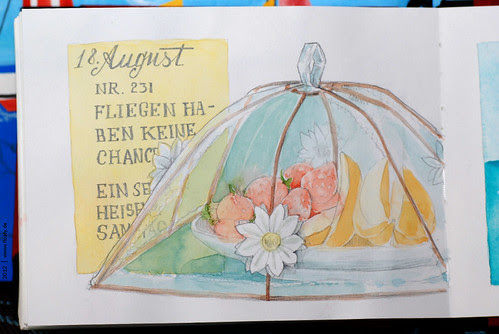 18. August
NR. 231
FLIEGEN HA-
BEN KEINE
CHANCE
EIN SE
HEISE
SAM